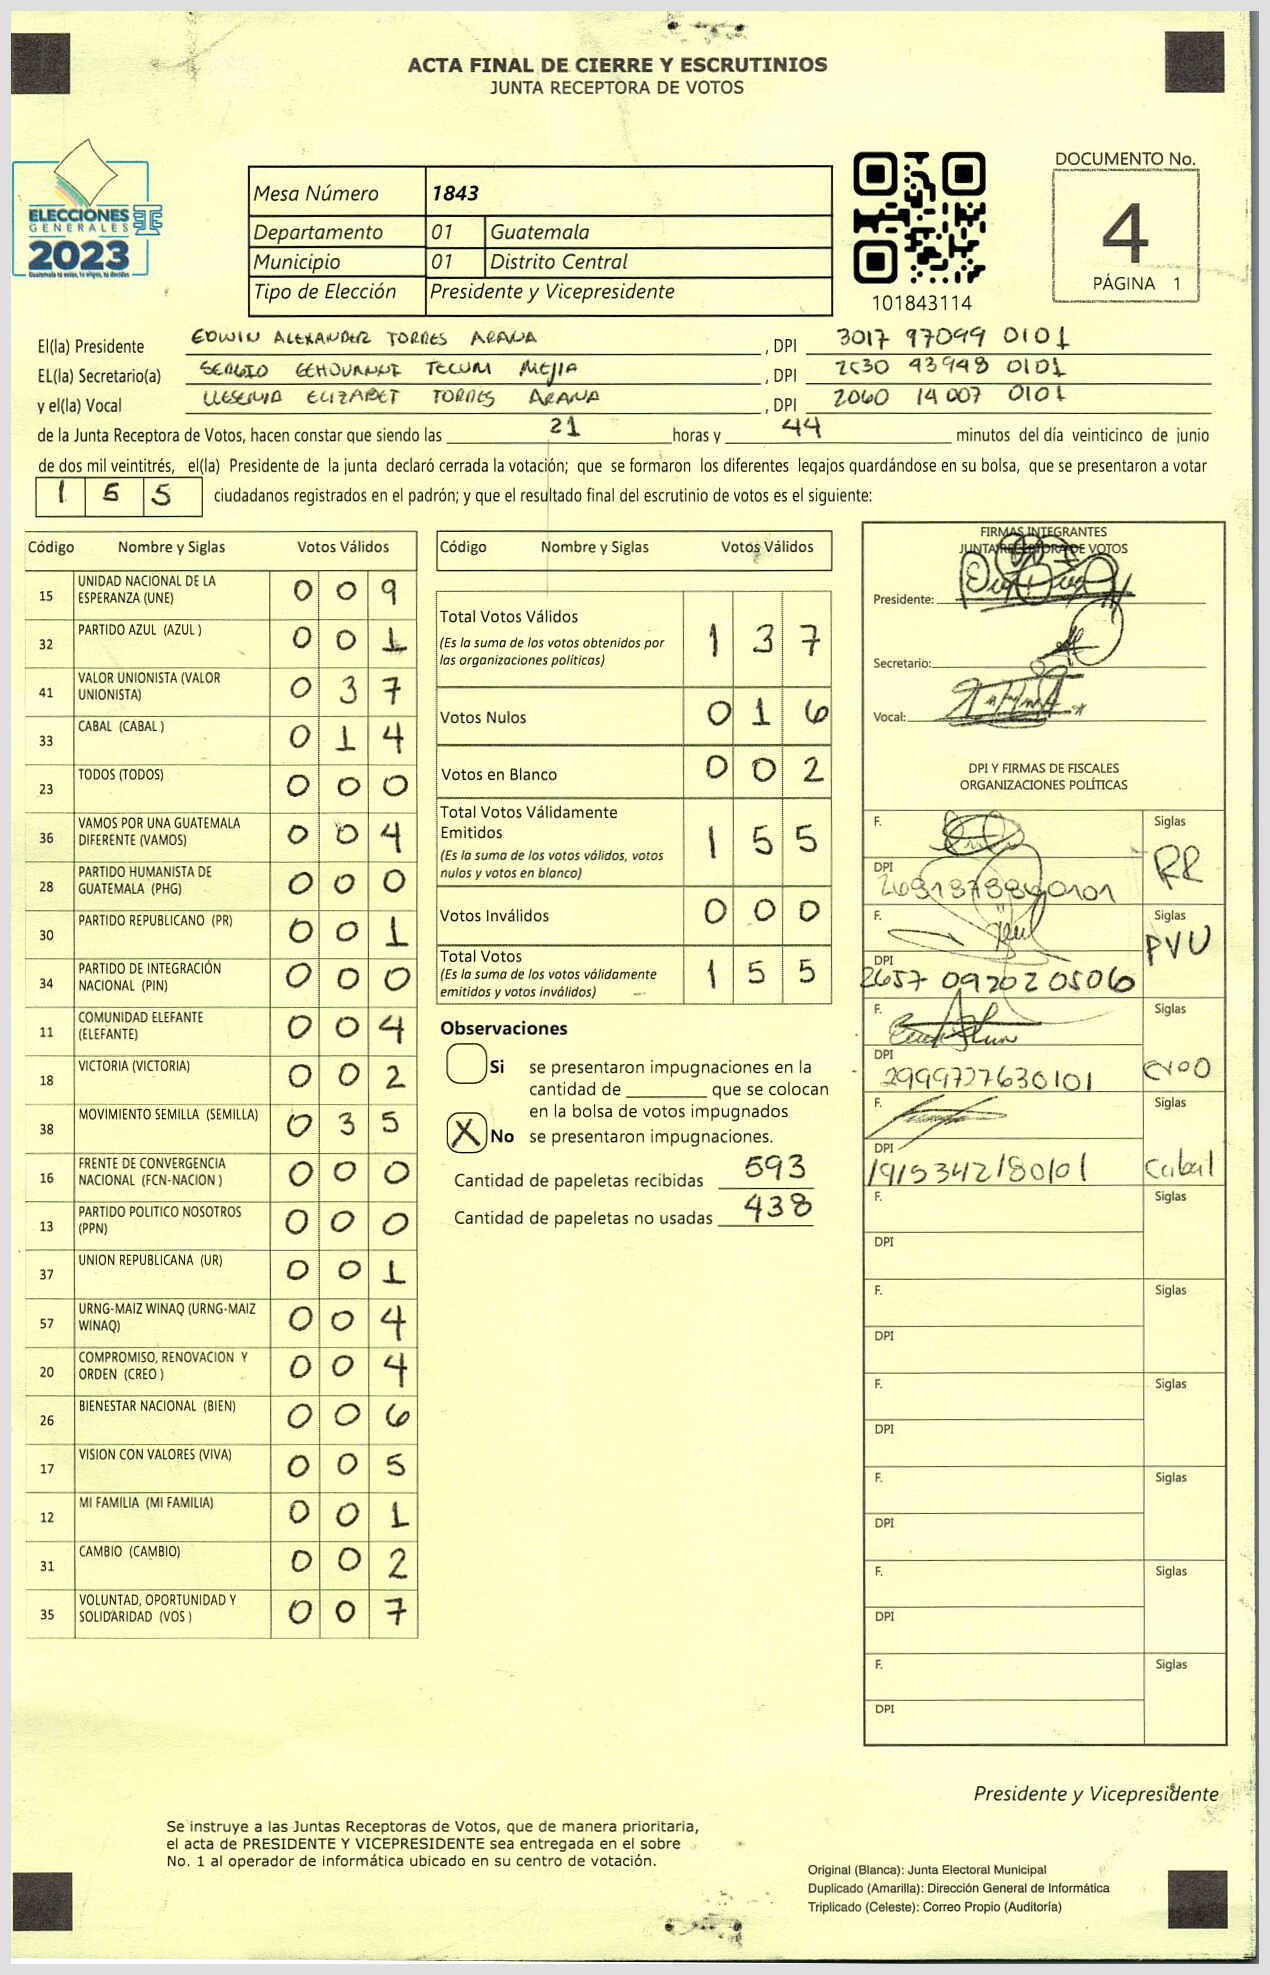 ACTA FINAL DE CIERRE Y ESCRUTINIOS
JUNTA RECEPTORA DE VOTOS
ELECCIONES
GENERALES
2023
Guatemala tú votas, tú eliges, tú decides
Mesa Número 1843
Departamento 01 Guatemala
Municipio 01 Distrito Central
Tipo de Elección Presidente y Vicepresidente
101843114
DOCUMENTO No.
4
PÁGINA 1
El(la) Presidente EDWIN ALEXANDER TORRES ARANA , DPI 3017 97099 0101
EL(la) Secretario(a) SERGIO GEHOVANNI TECUM MEJIA , DPI 2530 43948 0101
y el(la) Vocal LLESENIA ELIZABET TORRES ARANA , DPI 2060 14007 0101
de la Junta Receptora de Votos, hacen constar que siendo las 21 horas y 44 minutos del día veinticinco de junio
de dos mil veintitrés, el(la) Presidente de la junta declaró cerrada la votación; que se formaron los diferentes legajos guardándose en su bolsa, que se presentaron a votar
155 ciudadanos registrados en el padrón; y que el resultado final del escrutinio de votos es el siguiente:
Código Nombre y Siglas Votos Válidos
15 UNIDAD NACIONAL DE LA ESPERANZA (UNE) 009
32 PARTIDO AZUL (AZUL ) 001
41 VALOR UNIONISTA (VALOR UNIONISTA) 037
33 CABAL (CABAL ) 014
23 TODOS (TODOS) 000
36 VAMOS POR UNA GUATEMALA DIFERENTE (VAMOS) 004
28 PARTIDO HUMANISTA DE GUATEMALA (PHG) 000
30 PARTIDO REPUBLICANO (PR) 001
34 PARTIDO DE INTEGRACIÓN NACIONAL (PIN) 000
11 COMUNIDAD ELEFANTE (ELEFANTE) 004
18 VICTORIA (VICTORIA) 002
38 MOVIMIENTO SEMILLA (SEMILLA) 035
16 FRENTE DE CONVERGENCIA NACIONAL (FCN-NACION ) 000
13 PARTIDO POLITICO NOSOTROS (PPN) 000
37 UNION REPUBLICANA (UR) 001
57 URNG-MAIZ WINAQ (URNG-MAIZ WINAQ) 004
20 COMPROMISO, RENOVACION Y ORDEN (CREO ) 004
26 BIENESTAR NACIONAL (BIEN) 006
17 VISION CON VALORES (VIVA) 005
12 MI FAMILIA (MI FAMILIA) 001
31 CAMBIO (CAMBIO) 002
35 VOLUNTAD, OPORTUNIDAD Y SOLIDARIDAD (VOS ) 007
Código Nombre y Siglas Votos Válidos
Total Votos Válidos 137
(Es la suma de los votos obtenidos por
las organizaciones políticas)
Votos Nulos 016
Votos en Blanco 002
Total Votos Válidamente
Emitidos 155
(Es la suma de los votos válidos, votos
nulos y votos en blanco)
Votos Inválidos 000
Total Votos 155
(Es la suma de los votos válidamente
emitidos y votos inválidos)
Observaciones
Si se presentaron impugnaciones en la
cantidad de ________ que se colocan
en la bolsa de votos impugnados
X No se presentaron impugnaciones.
Cantidad de papeletas recibidas 593
Cantidad de papeletas no usadas 438
FIRMAS INTEGRANTES
JUNTA RECEPTORA DE VOTOS
Presidente:
Secretario:
Vocal:
DPI Y FIRMAS DE FISCALES
ORGANIZACIONES POLÍTICAS
F. Siglas
DPI PR
F. Siglas
DPI 2657 09202 0506 PVU
F. Siglas
DPI 2999727630101
F. Siglas
DPI 1915342180101 Cabal
F. Siglas
DPI
F. Siglas
DPI
F. Siglas
DPI
F. Siglas
DPI
F. Siglas
DPI
F. Siglas
DPI
Presidente y Vicepresidente
Se instruye a las Juntas Receptoras de Votos, que de manera prioritaria,
el acta de PRESIDENTE Y VICEPRESIDENTE sea entregada en el sobre
No. 1 al operador de informática ubicado en su centro de votación.
Original (Blanca): Junta Electoral Municipal
Duplicado (Amarilla): Dirección General de Informática
Triplicado (Celeste): Correo Propio (Auditoría)